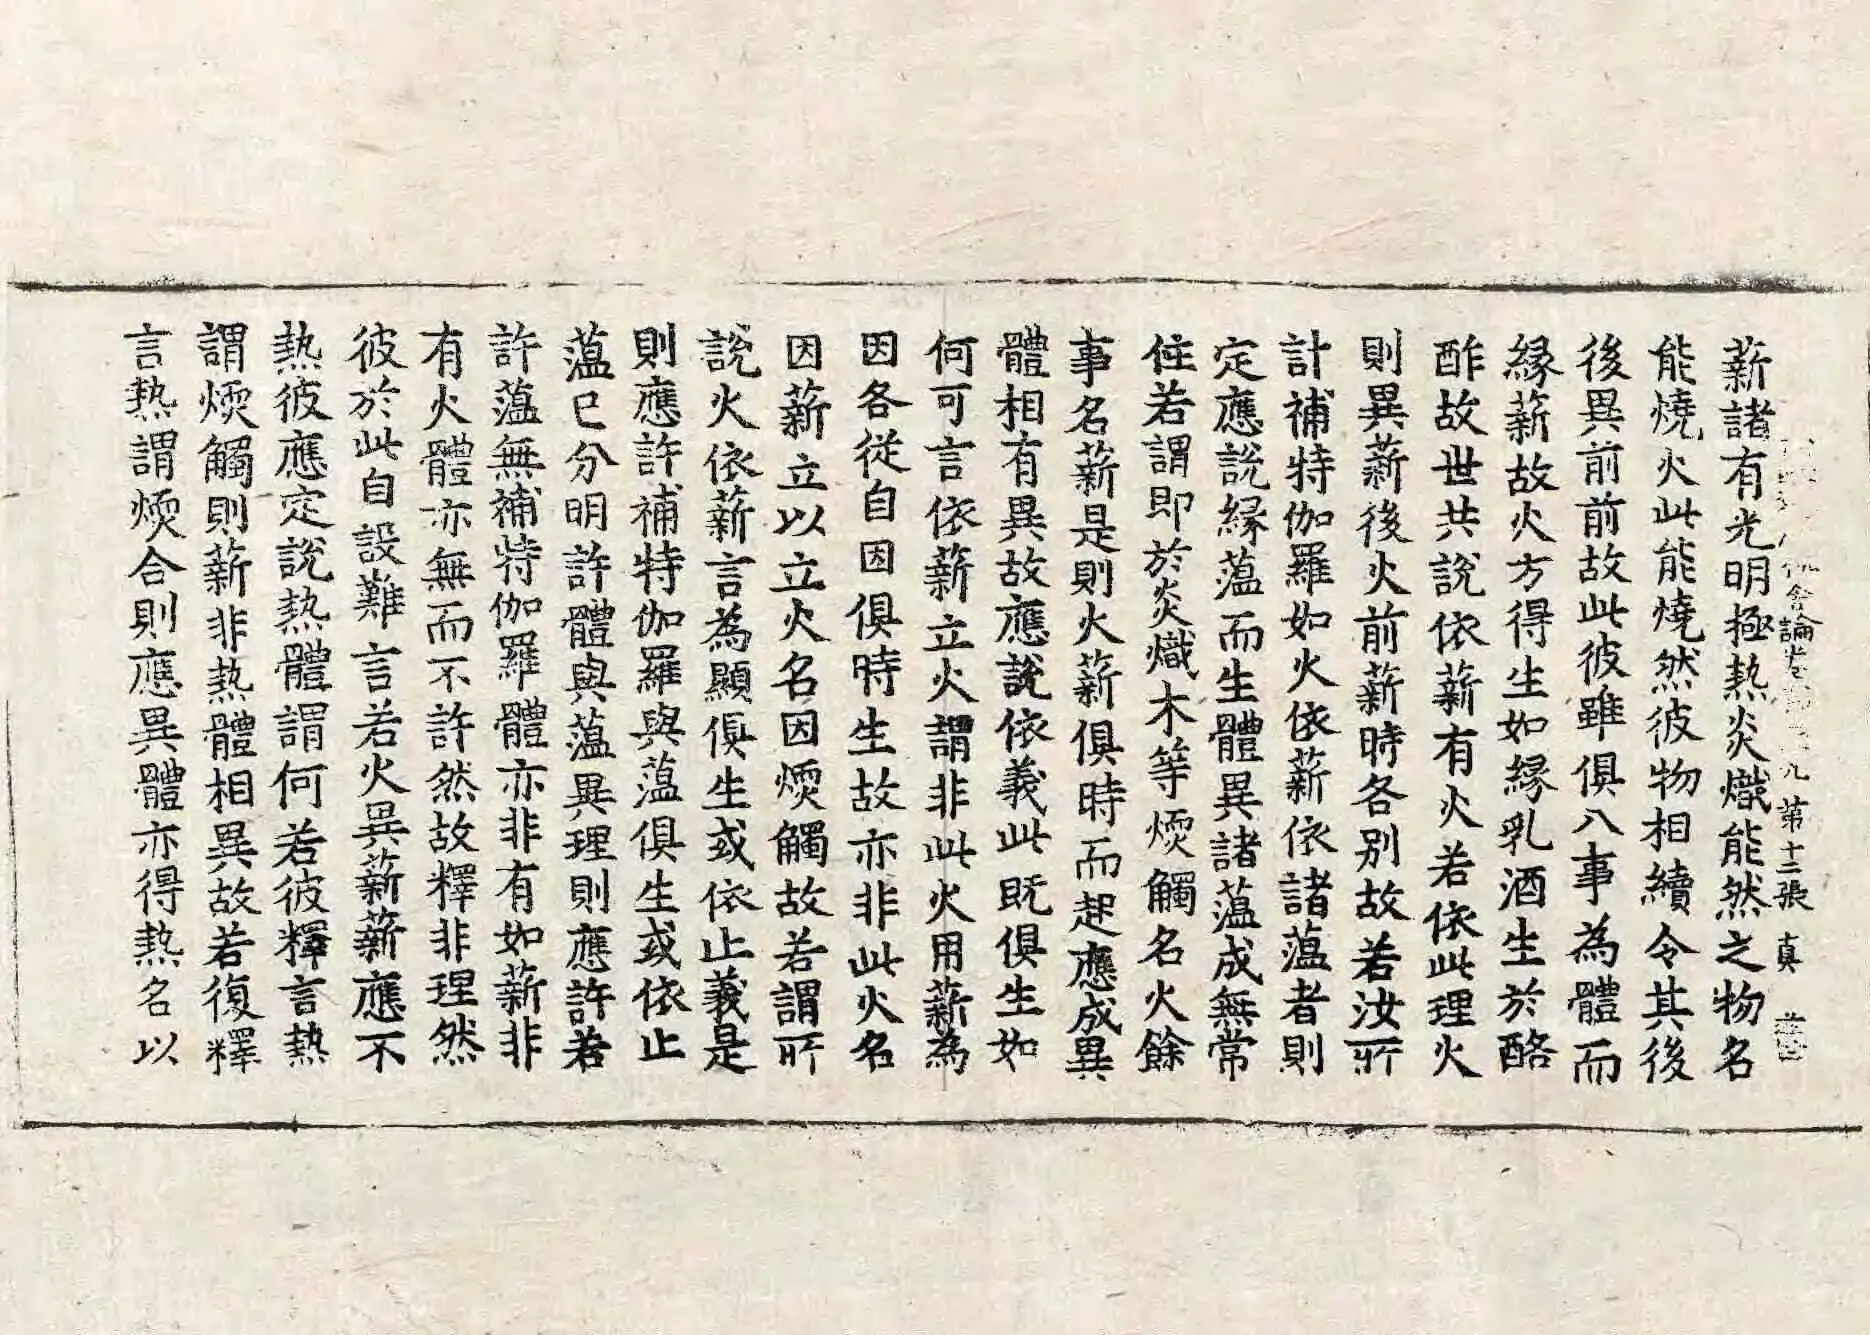 薪諸有光明極熱炎熾能然之物名
舍論卷九第十二張 真
能燒火此能能燒然彼物相續令其後
後異前前故此彼雖俱八事為體而
縁薪故火方得生如縁乳酒生於酪
酢故世共說依薪有火若依此理火
則異薪後火前薪時各別故若汝所
計補特伽羅如火依薪依諸薀者則
定應說縁薀而生體異諸薀成無常
住若謂即於炎熾木等煗觸名火餘
事名薪是則火薪俱時而起應成異
體相有異故應說依義此既俱生如
何可言依薪立火謂非此火用薪為
因各從自因俱時生故亦非此火名
因薪立以立火名因煗觸故若謂所
說火依薪言為顯俱生或依止義是
則應許補特伽羅與薀俱生或依止
薀已分明許體與薀異理則應許若
許薀無補特伽羅體亦非有如薪非
有火體亦無而不許然故釋非理然
彼於此自設難言若火異薪薪應不
熱彼應定說熱體謂何若彼釋言熱
謂煗觸則薪非熱體相異故若復釋
言熱謂煗合則應異體亦得熱名以